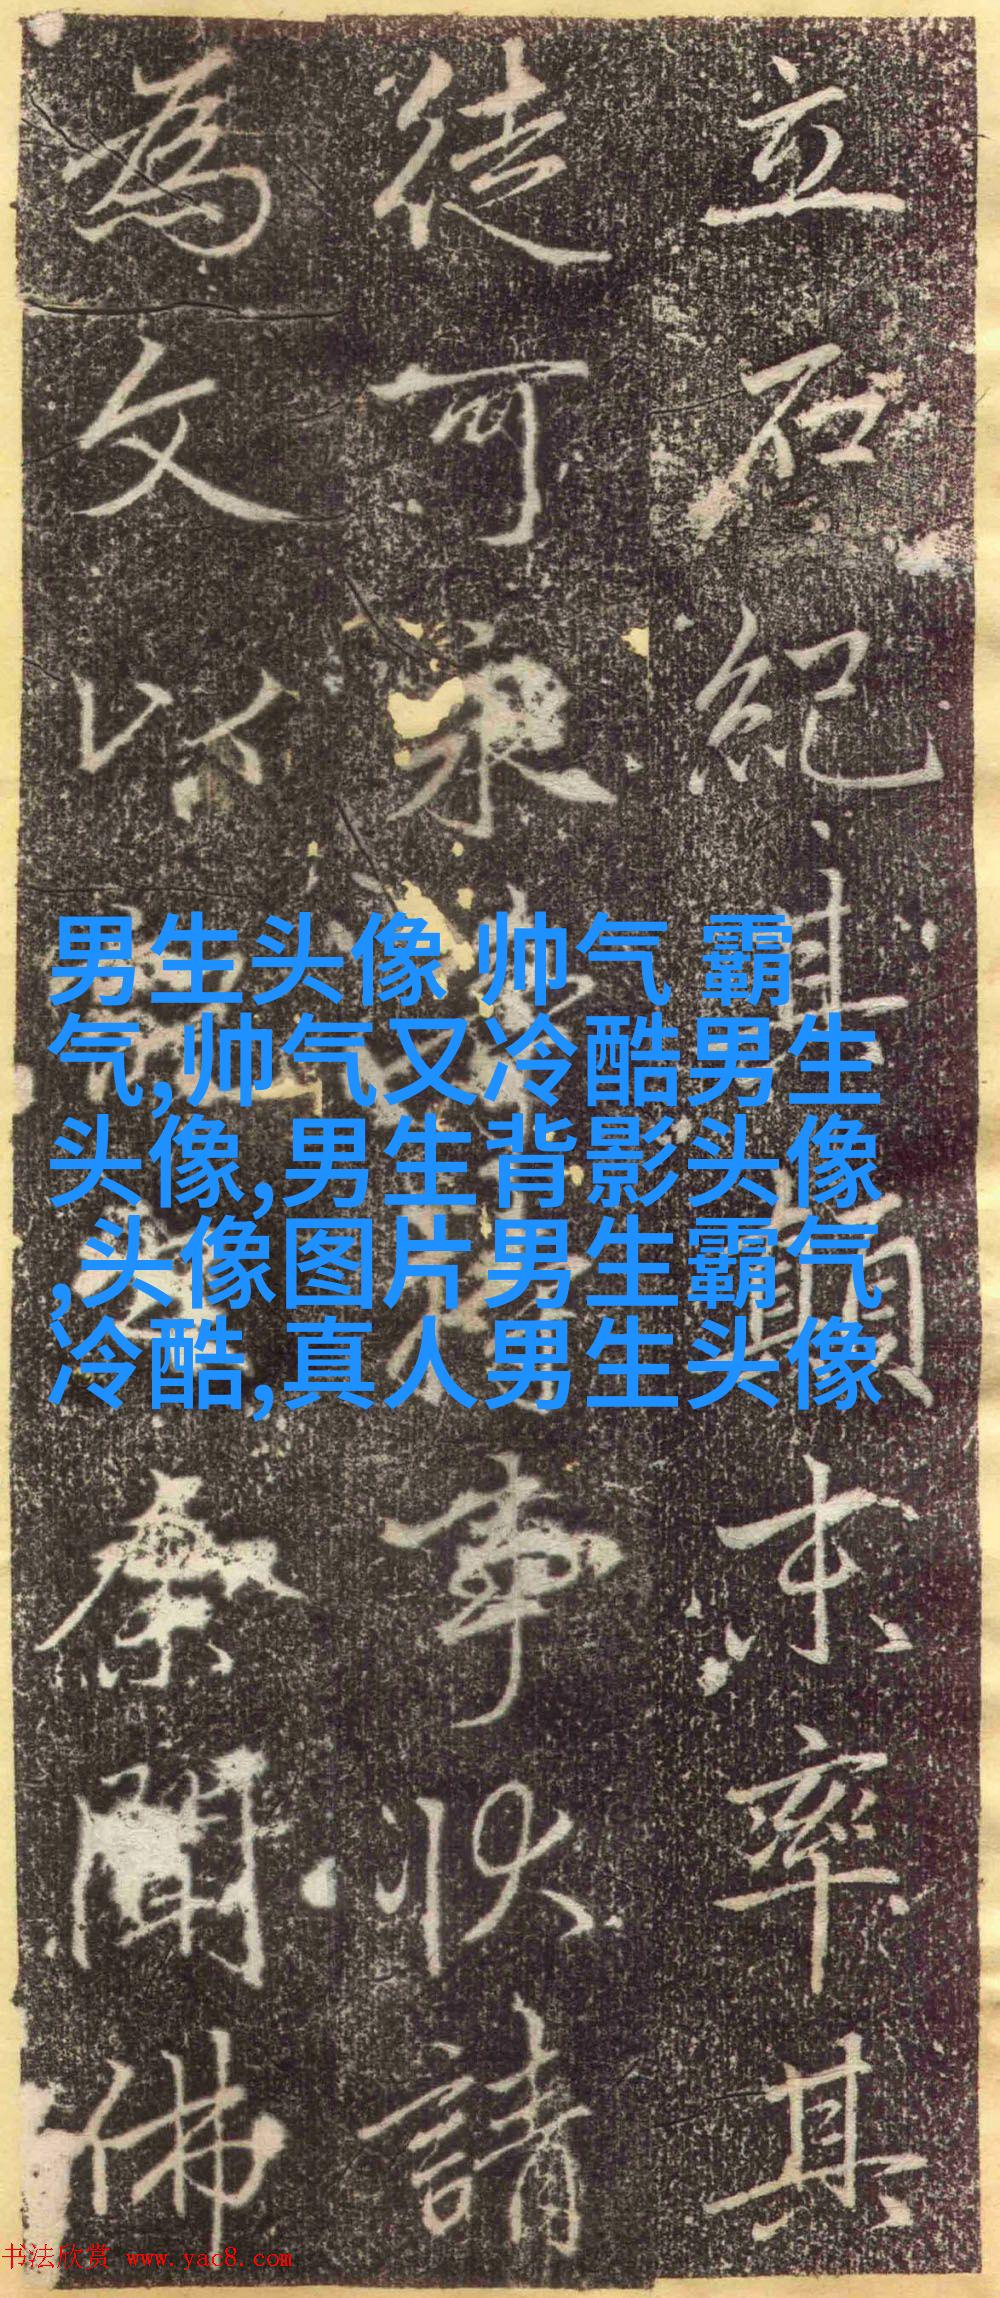 立石紀其顛末率其
徒可永事狀請
為文以聞佛
男生头像 帅气 霸
气,帅气又冷酷男生
头像,男生背影头像
,头像图片男生霸气
冷酷,真人男生头像
书法欣赏 www.yac8.com